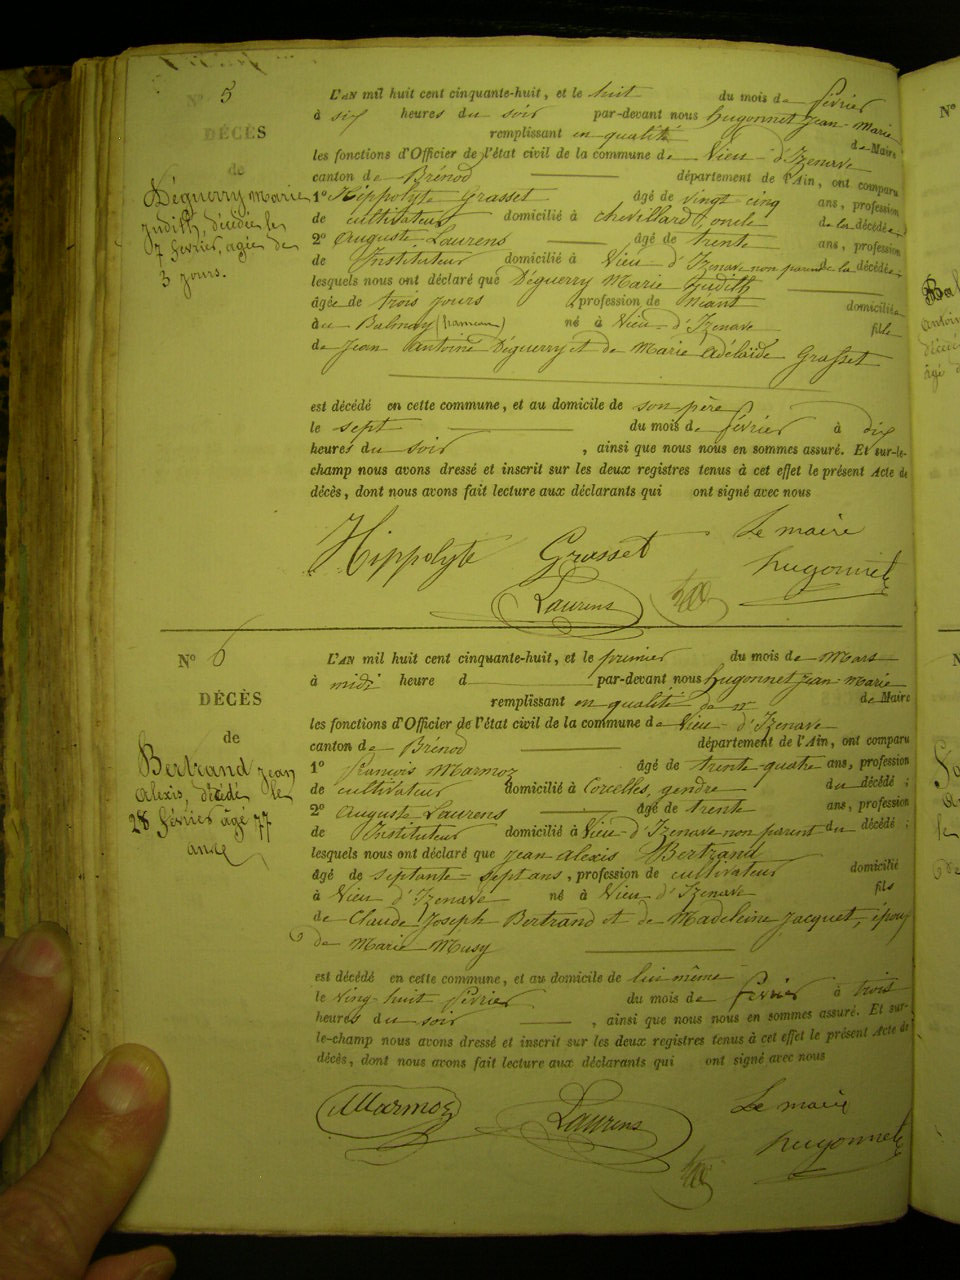 N° 5
DÉCÈS
de
Déguerry Marie
Judith, décédée le
7 février, agée de
3 jours.
L'AN mil huit cent cinquante-huit, et le huit du mois de février
à six heures du soir par-devant nous Hugonnet Jean-Marie
remplissant en qualité de Maire
les fonctions d'Officier de l'état civil de la commune de Vieu-d'Izenave
canton de Brénod département de l'Ain, ont comparu
1° Hippolyte Grasset âgé de vingt cinq ans, profession
de cultivateur domicilié à chevillard, oncle de la décédée;
2° Auguste Laurens âgé de trente ans, profession
de Instituteur domicilié à Vieu d'Izenave non parent de la décédée;
lesquels nous ont déclaré que Déguerry Marie Judith
âgée de trois jours profession de néant domiciliée
au Balmay (hameau) né à Vieu-d'Izenave fille
de Jean Antoine Déguerry et de Marie Adélaïde Grasset
est décédé en cette commune, et au domicile de son père
le sept du mois de février à dix
heures du soir, ainsi que nous nous en sommes assuré. Et sur-le-
champ nous avons dressé et inscrit sur les deux registres tenus à cet effet le présent Acte de
décès, dont nous avons fait lecture aux déclarants qui ont signé avec nous
Hippolyte Grasset Le maire
Laurens hugonnet
N° 6
DÉCÈS
de
Bertrand Jean
Alexis, décédé le
28 février agé 77
ans
L'AN mil huit cent cinquante-huit, et le premier du mois de Mars
à midi heure d par-devant nous Hugonnet Jean-Marie
remplissant en qualité de Maire
les fonctions d'Officier de l'état civil de la commune de Vieu-d'Izenave
canton de Brénod département de l'Ain, ont comparu
1° françois Marmoz âgé de trente-quatre ans, profession
de cultivateur domicilié à Corcelles, gendre du décédé;
2° Auguste Laurens âgé de trente ans, profession
de Instituteur domicilié à Vieu-d'Izenave non parent du décédé;
lesquels nous ont déclaré que Jean Alexis Bertrand
âgé de septante-sept ans, profession de cultivateur domicilié
à Vieu d'Izenave né à Vieu d'Izenave fils
de Claude Joseph Bertrand et de Madeleine Jacquet, époux
de Marie Musy
est décédé en cette commune, et au domicile de lui-même
le vingt-huit février du mois de février à trois
heures du soir, ainsi que nous nous en sommes assuré. Et sur-
le-champ nous avons dressé et inscrit sur les deux registres tenus à cet effet le présent Acte de
décès, dont nous avons fait lecture aux déclarants qui ont signé avec nous
Marmoz Laurens Le maire
hugonnet